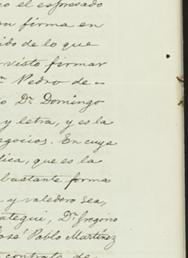 o el espresado
on firma en
ibo de lo que
r visto firmar
Pedro de
o Dn. Domingo
y letra, y es la
egocios. En cuya
lica, que es la
bastante forma
y valedero sea,
ategui, Dn. Gregorio
José Pablo Martínez
contrato de